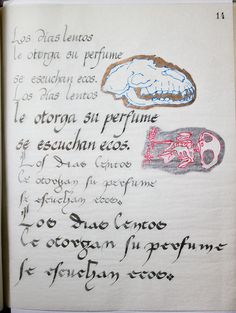 14
Los dias lentos
le otorga su perfume
se escuchan ecos.
Los dias lentos
le otorga su perfume
se escuchan ecos.
Los dias lentos
le otorgan su perfume
se escuchan ecos.
Los dias lentos
le otorgan su perfume
se escuchan ecos.